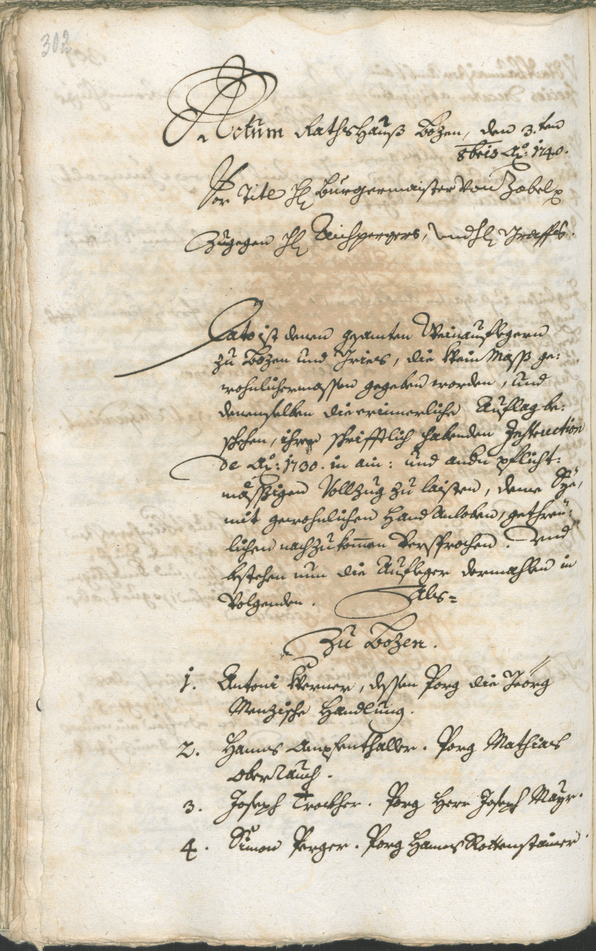 302
Actum Rathshauß Bozen, den 3.ten
8bris Ao: 1740.
Vor Tite H: Burgermaister von Zobel
zugegen H: Aichpergers, und H: Graffs.
Dato ist denen gesamten Weinauflegern
zu Bozen und Gries, die Wein Mass ge:
wohnlichermassen gegeben worden, und
denenselben die erinnerliche Auflag be:
schehen, ihrer schrifftlich habenden Instruction
de Ao: 1730. in ain: und andern pflicht:
mässigen Vollzug zu laisten, deme Sye,
mit gewohnlichen Hand Anloben, getreu:
lichen nachzukommen versprochen. Und
bestehen nun die Aufleger dermahlen in
Volgenden. Als=
Zu Bozen.
1. Antoni Werner, dessen Porg die Georg
Menzische Handlung.
2. Hanns Ampfenthaller. Porg Mathias
Oberrauch.
3. Joseph Trockher. Porg Herr Joseph Mayr.
4. Simon Perger. Porg Hanns Rottenstainer